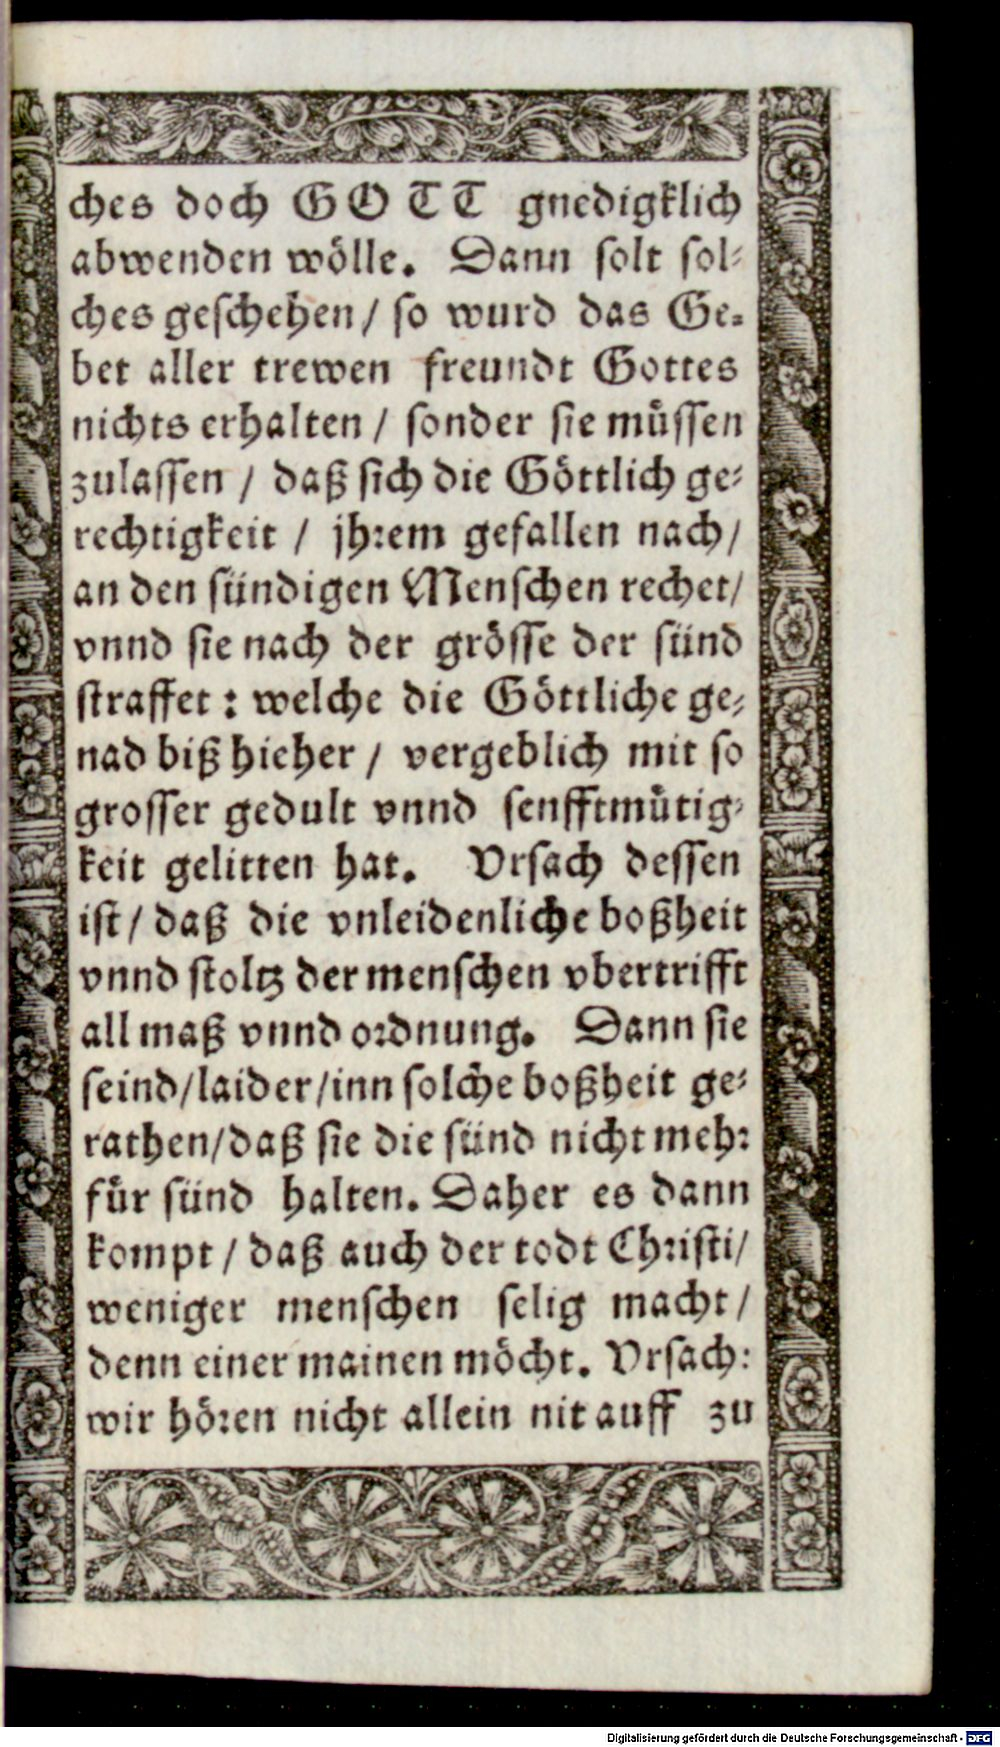 ches doch GOTT gnedigklich
abwenden wölle. Dann solt sol-
ches geschehen / so wurd das Ge-
bet aller trewen freundt Gottes
nichts erhalten / sonder sie müssen
zulassen / daß sich die Göttlich ge-
rechtigkeit / jhrem gefallen nach /
an den sündigen Menschen rechet /
vnnd sie nach der grösse der sünd
straffet : welche die Göttliche ge-
nad biß hieher / vergeblich mit so
grosser gedult vnnd senfftmütig-
keit gelitten hat. Vrsach dessen
ist / daß die vnleidenliche boßheit
vnnd stoltz der menschen vbertrifft
all maß vnnd ordnung. Dann sie
seind / laider / inn solche boßheit ge-
rathen / daß sie die sünd nicht mehr
für sünd halten. Daher es dann
kompt / daß auch der todt Christi /
weniger menschen selig macht /
denn einer mainen möcht. Vrsach:
wir hören nicht allein nit auff zu
Digitalisierung gefördert durch die Deutsche Forschungsgemeinschaft - DFG